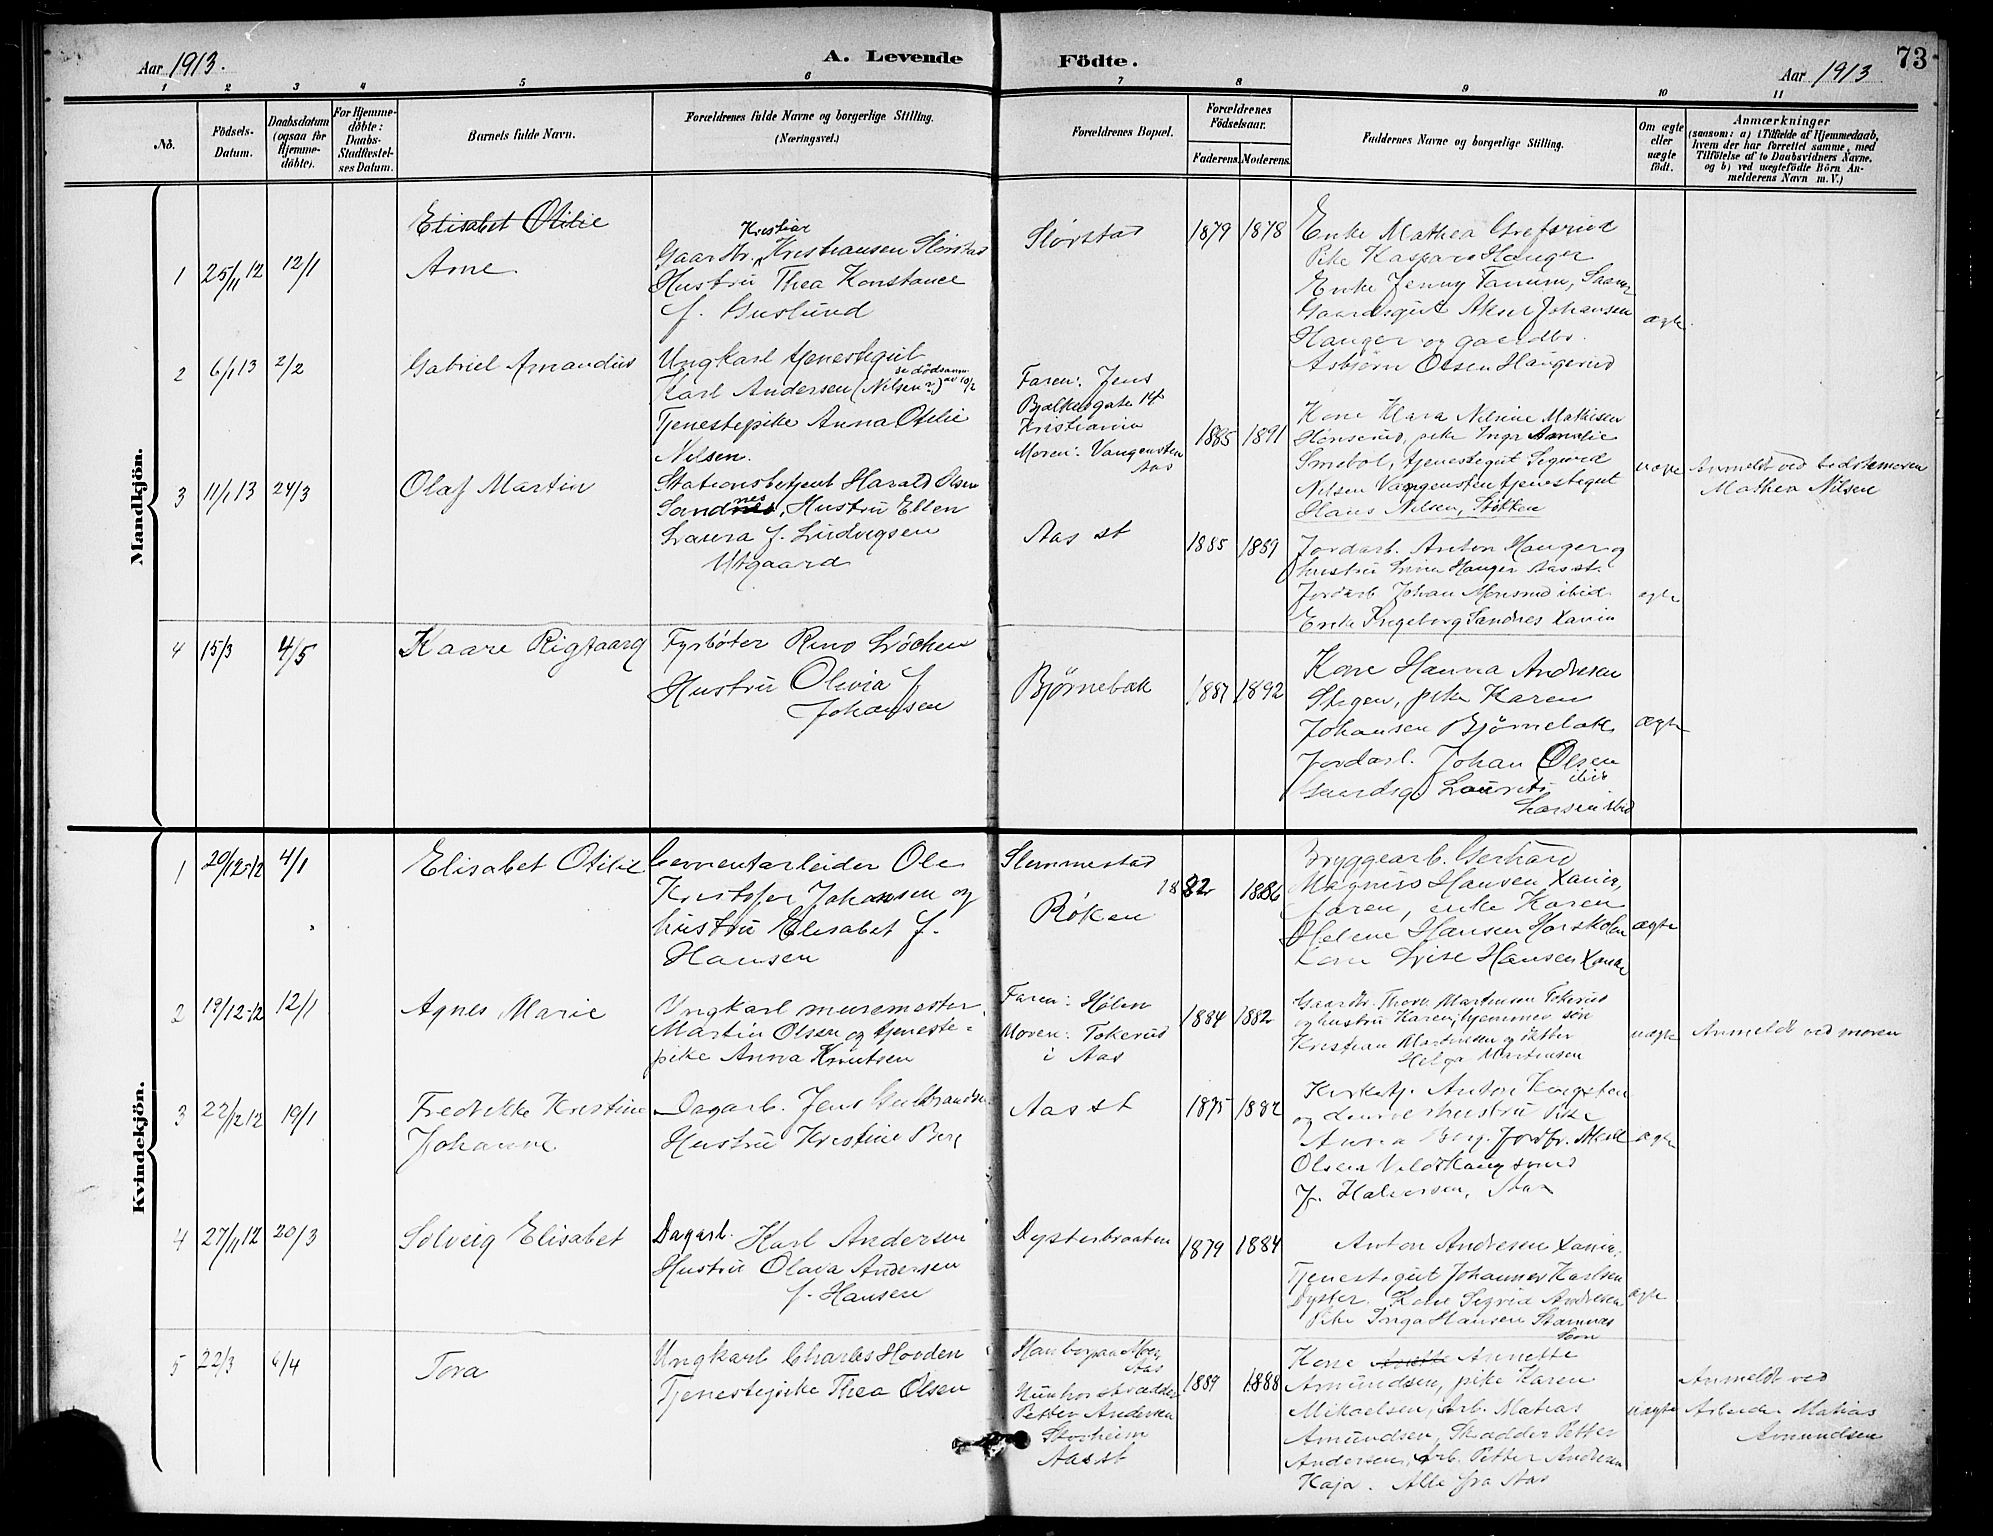 Aar 1913.
A. Levende Födte.
73
Aar 1913
1 2 3 4 5 6 7 8 9 10 11
No.
Födsels-
Datum.
Daabsdatum
(ogsaa for
Hjemme-
döbte).
For Hjemme-
döbte:
Daabs-
Stadfæstel-
ses Datum.
Barnets fulde Navn.
Forældrenes fulde Navne og borgerlige Stilling.
(Næringsvei.)
Forældrenes Bopæl.
Forældrenes
Födselsaar.
Faderens. Moderens.
Faddernes Navne og borgerlige Stilling.
Om ægte
eller
uægte
födt.
Anmærkninger
(saasom: a) i Tilfælde af Hjemmedaab,
hvem der har forrettet samme, med
Tilföielse af to Daabsvidners Navne,
og b) ved uægtefödte Börn An-
melderens Navn m. V.)
Mandkjön.
1 25/11 12 12/1
Elisabet Otilie
Arne
Kristian
Gaardbr. Kristiansen Slørstad
Hustru Thea Konstance
f. Guslund
Slørstad
1879 1878
Enke Mathea Grefsrud
Pike Kaspara Hauger
Enke Jenny Tanum, Saaner
Gaardsgut Aksel Johansen
Hauger og gaardbr.
Asbjørn Olsen Haugerud
ægte
2 6/1 13 2/2
Gabriel Amandus
Ungkarl tjenestegut
Karl Andersen (Nilsen?)
Tjenestepike Anna Otilie
Nilsen.
Faren: Jens
Bjelkesgate 14
Kristiania
Moren: Vangensten
Aas
1885 1891
Kone Klara Nilsine Mathisen
pike Inga Amalie
Smebøl, tjenestegut Sigurd
Nilsen Vangensten tjenestegut
Hans Nilsen, Støkken
uægte
Anmeldt ved bedstemoren
Mathea Nilsen
3 11/1 13 24/3
Olaf Martin
Stationsbetjent Harald Olsen
Sandnes, Hustru Ellen
Laura f. Ludvigsen
Utgaard
Aas st
1885 1889
Jordarb. Anton Hauger og
hustru Lina Hauger Aas st.
Jordarb Johan Monsrud ibid.
Enke Ingeborg Sandnes Xania
ægte
4 15/3 4/5
Kaare Rigtaarg
Fyrbøter Reno Løchen
Hustru Olivia f
Johansen
Bjørnebæk
1887 1892
Kone Hanna Andresen
Stigen, pike Karen
Johansen Bjørnebæk
Jordarb. Johan Olsen
ibid
Gaardsg. Laurits
Larsen ibid
ægte
Kvindekjön.
1 20/12-12 4/1
Elisabet Otilie
Cementarbeider Ole
Kristofer Johansen og
hustru Elisabet f.
Hansen
Slemmestad
Røken
1882 1886
Bryggearb. Gerhard
Magnus Hansen Xania,
faren, enke Karen
Helene Hansen Horskolen
Kone Lovise Hansen Xania
ægte
2 19/12-12 12/1
Agnes Marie
Ungkarl muremester
Martin Olsen og tjeneste-
pike Anna Knutsen
Faren: Hølen
Moren: Tokerud
i Aas
1884 1882
Gaardbr. Thorv. Martinsen Tokerud
og hustru Karen, hjemmev. søn
Kristian Martinsen og datter
Helga Martinsen
uægte
Anmeldt ved moren
3 22/12 12 19/1
Fredrikke Kristine
Johanne
Dagarb. Jens Gulbrandsen
Hustru Kristine Berg
Aas st
1875 1882
Kirketj. Anton Kongsten
og dennes hustru Pike
Anna Berg. Jordbr. Aksel
Olsen
f. Halvorsen, Aas
ægte
4 27/11 12 20/3
Solveig Elisabet
Dagarb. Karl Andersen
Hustru Olava Andersen
f. Hansen
Dysterbraaten
1879 1884
Anton Andresen Xania.
Tjenestegut Johannes Karlsen
Dyster. Kone Sigrid Andresen
Pike Inga Hansen
ægte
5 22/3 6/4
Tora
Ungkarl Charles Hovden
Tjenestepike Thea Olsen
Han bor paa Moen
Aas
Hun hos skrædder
Petter Andersen
Storheim
Aas st
1889 1888
Kone Annette
Amundsen, pike Karen
Mikaelsen, Arb. Matias
Amundsen, Skrædder Petter
Andersen, Arb. Petter Andresen
Kaja. Alle fra Aas
uægte
Anmeldt ved
Arbeider Matias
Amundsen